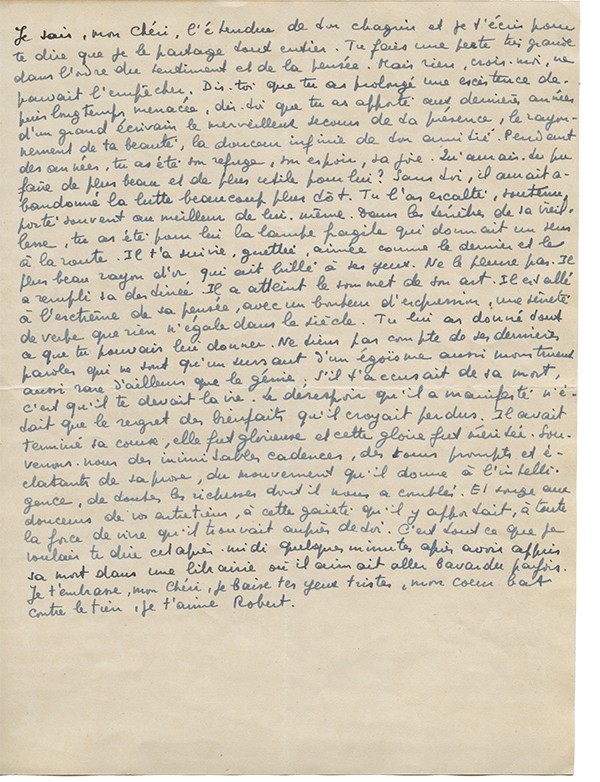 Je sais, mon Chéri, l'étendue de ton chagrin et je t'écris pour
te dire que je le partage tout entier. Tu fais une perte très grande
dans l'ordre du sentiment et de la pensée. Mais rien, crois-moi, ne
pouvait l'empêcher. Dis-toi que tu as prolongé une existence de-
puis longtemps menacée, dis-toi que tu as apporté aux dernières années
d'un grand écrivain le merveilleux secours de ta présence, le rayon-
nement de ta beauté, la douceur infinie de ton amitié. Pendant
des années, tu as été son refuge, son espoir, sa joie. Qu'aurais-tu pu
faire de plus beau et de plus utile pour lui? Sans toi, il aurait a-
bandonné la lutte beaucoup plus tôt. Tu l'as exalté, soutenu,
porté souvent au meilleur de lui-même. Dans les ténèbres de sa vieil-
lesse, tu as été pour lui la lampe fragile qui donnait un sens
à la route. Il t'a suivie, guettée, aimée comme le dernier et le
plus beau rayon d'or qui ait brillé à ses yeux. Ne le pleure pas. Il
a rempli sa destinée. Il a atteint le sommet de son art. Il est allé
à l'extrême de sa pensée, avec un bonheur d'expression, une sûreté
de verbe que rien n'égale dans le siècle. Tu lui as donné tout
ce que tu pouvais lui donner. Ne tiens pas compte de ses dernières
paroles qui ne sont qu'un sursaut d'un égoïsme aussi monstrueux
aussi rare d'ailleurs que le génie; s'il t'accusait de sa mort,
c'est qu'il te devait la vie. Le désespoir qu'il a manifesté n'é-
tait que le regret des bienfaits qu'il croyait perdus. Il avait
terminé sa course, elle fut glorieuse et cette gloire fut méritée. Sou-
venons-nous des inimitables cadences, des tours prompts et é-
clatants de sa prose, du mouvement qu'il donne à l'intelli-
gence, de toutes les richesses dont il nous a comblés. Et songe aux
douceurs de vos entretiens, à cette gaieté qu'il y apportait, à toute
la force de vivre qu'il trouvait auprès de toi. C'est tout ce que je
voulais te dire cet après-midi quelques minutes après avoir appris
sa mort dans une librairie où il aimait aller bavarder parfois.
Je t'embrasse, mon Chéri, je baise tes yeux tristes, mon coeur bat
contre le tien, je t'aime Robert.